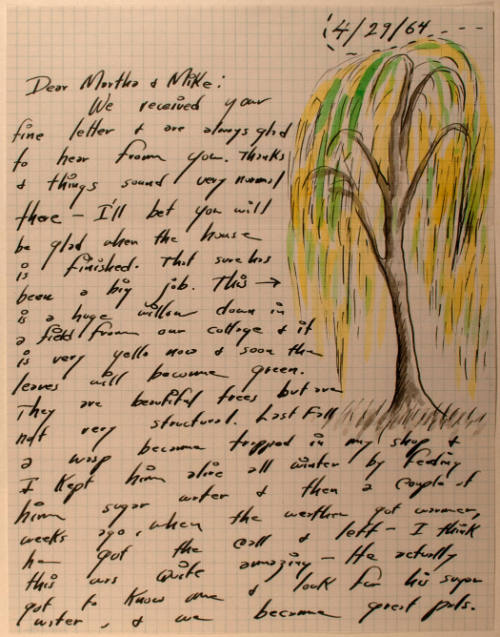 4/29/64
Dear Martha & Mike:
We received your
fine letter & are always glad
to hear from you. Thanks
& things sound very normal
there - I'll bet you will
be glad when the house
is finished. That sure has
been a big job. This →
is a huge willow down in
a field from our cottage & it
is very yello now & soon the
leaves will become green.
They are beautiful trees but are
not very structural. Last Fall
a wasp became trapped in my shop &
I kept him alive all winter by feeding
him sugar water & then a couple of
weeks ago, when the weather got warmer,
he got the call & left - I think
this was quite amazing - He actually
got to know me & look for his sugar
water, & we became great pals.